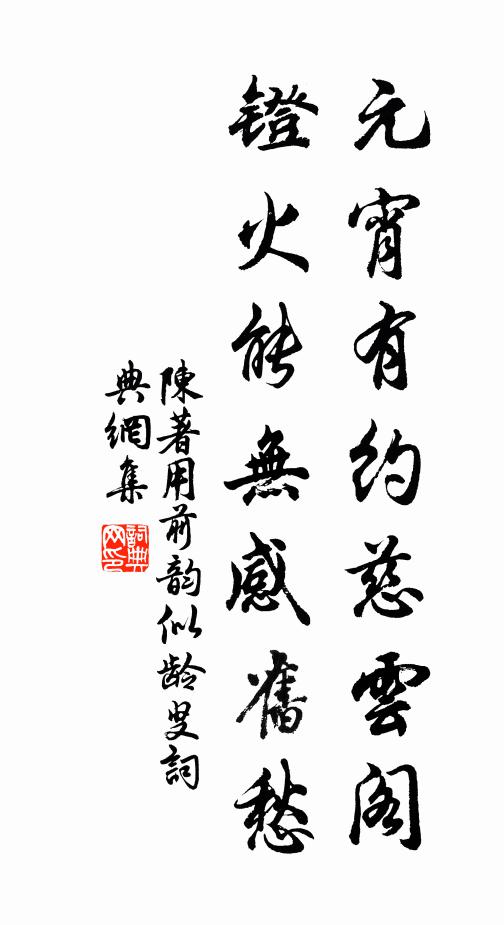 元宵有約慈雲阁
鐙火能無感舊愁
陳著用前韵似龄叟詞
典網集
詞典
网印